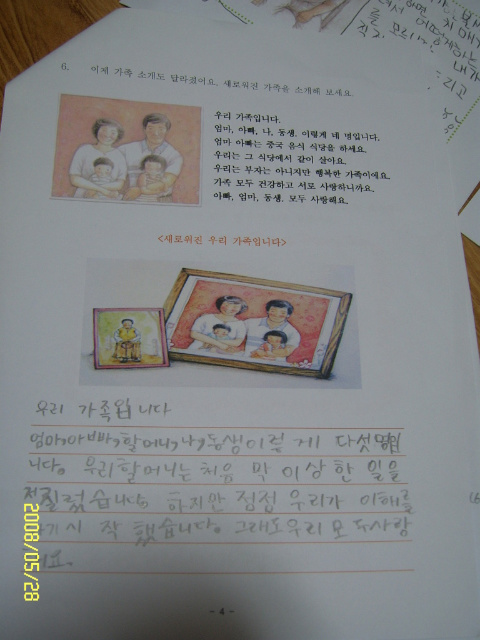 치매
를
어떻게하는
내가
리고
6. 이제 가족 소개도 달라졌어요. 새로워진 가족을 소개해 보세요.
우리 가족입니다.
엄마, 아빠, 나, 동생. 이렇게 네 명입니다.
엄마 아빠는 중국 음식 식당을 하세요.
우리는 그 식당에서 같이 살아요.
우리는 부자는 아니지만 행복한 가족이에요.
가족 모두 건강하고 서로 사랑하니까요.
아빠, 엄마, 동생. 모두 사랑해요.
<새로워진 우리 가족입니다>
우리 가족입니다
엄마,아빠,할머니,나,동생이렇게 다섯명입
니다. 우리할머니는 처음 막 이상한 일을
저질렀습니다. 하지만 점점 우리가 이해를
하기시작했습니다. 그래도우리모두사랑
해요.
- 4 -
2008/05/28